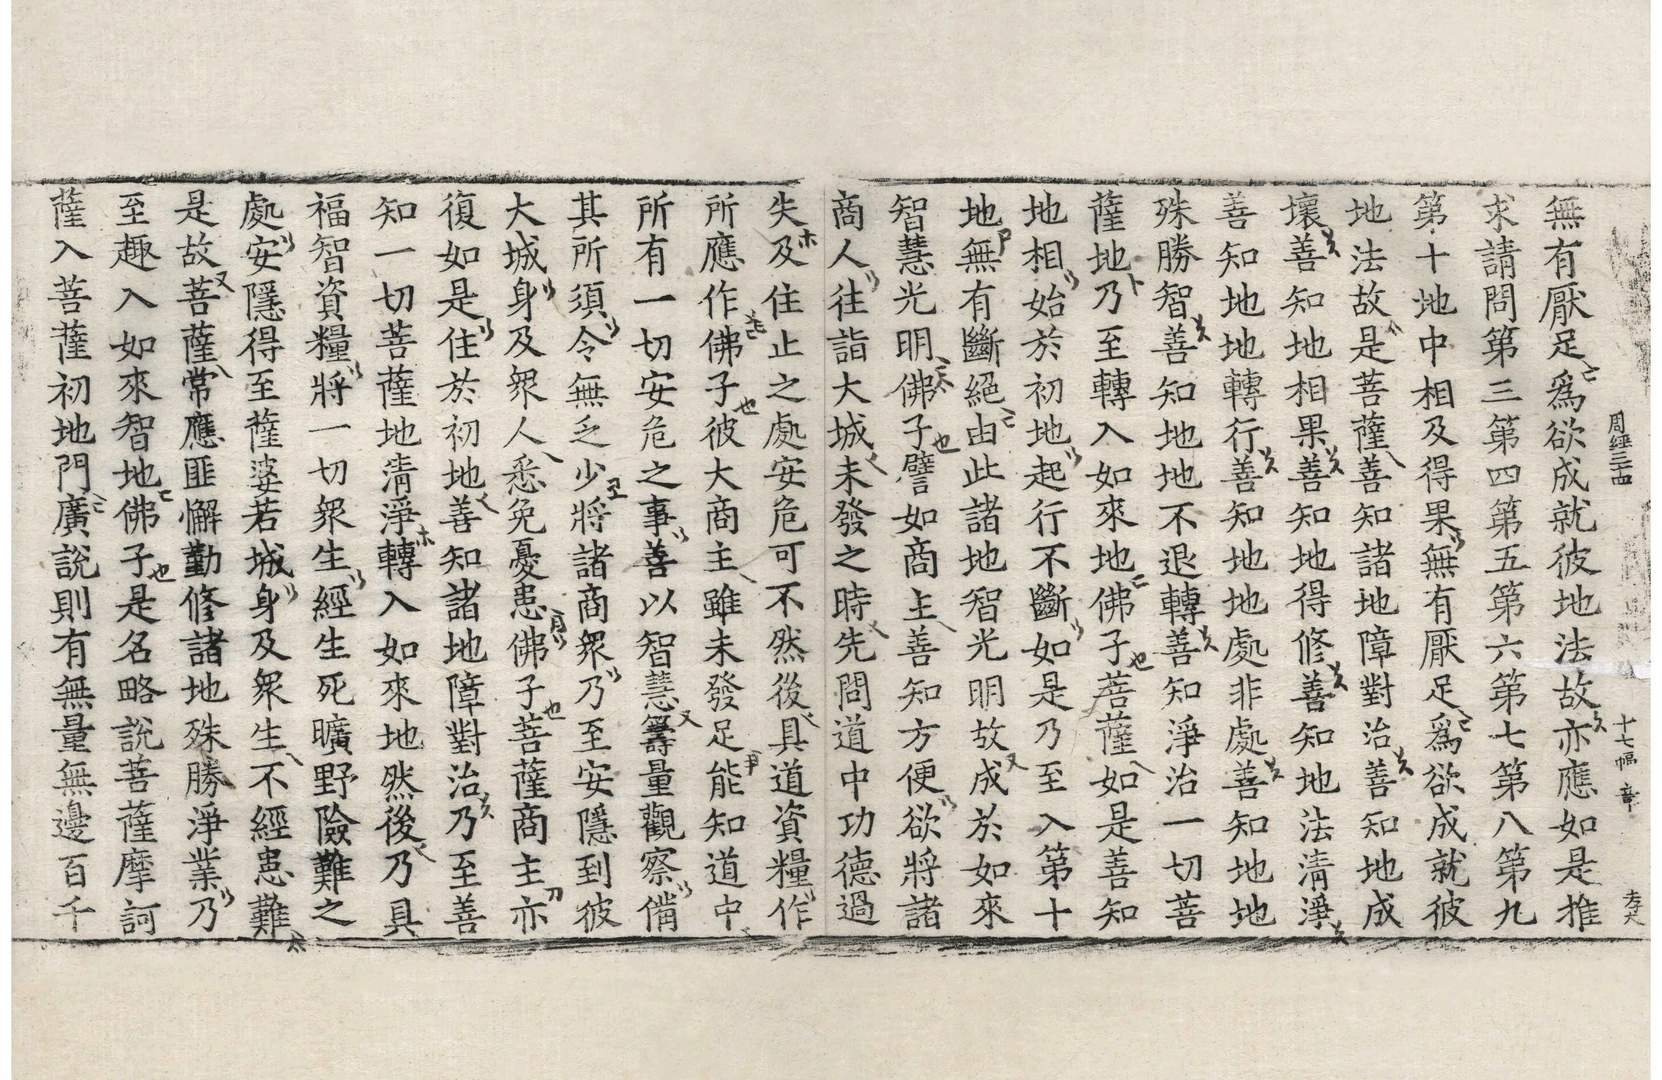 周經三十四 十七幅 章
無有厭足爲欲成就彼地法故亦應如是推
求請問第三第四第五第六第七第八第九
第十地中相及得果無有厭足爲欲成就彼
地法故是菩薩善知諸地障對治善知地成
壞善知地相果善知地得修善知地法淸淨
善知地地轉行善知地地處非處善知地地
殊勝智善知地地不退轉善知淨治一切菩
薩地乃至轉入如來地佛子菩薩如是善知
地相始於初地起行不斷如是乃至入第十
地無有斷絕由此諸地智光明故成於如來
智慧光明佛子譬如商主善知方便欲將諸
商人往詣大城未發之時先問道中功德過
失及住止之處安危可不然後具道資糧作
所應作佛子彼大商主雖未發足能知道中
所有一切安危之事善以智慧籌量觀察備
其所須令無乏少將諸商衆乃至安隱到彼
大城身及衆人悉免憂患佛子菩薩商主亦
復如是住於初地善知諸地障對治乃至善
知一切菩薩地淸淨轉入如來地然後乃具
福智資糧將一切衆生經生死曠野險難之
處安隱得至薩婆若城身及衆生不經患難
是故菩薩常應匪懈勤修諸地殊勝淨業乃
至趣入如來智地佛子是名略說菩薩摩訶
薩入菩薩初地門廣說則有無量無邊百千